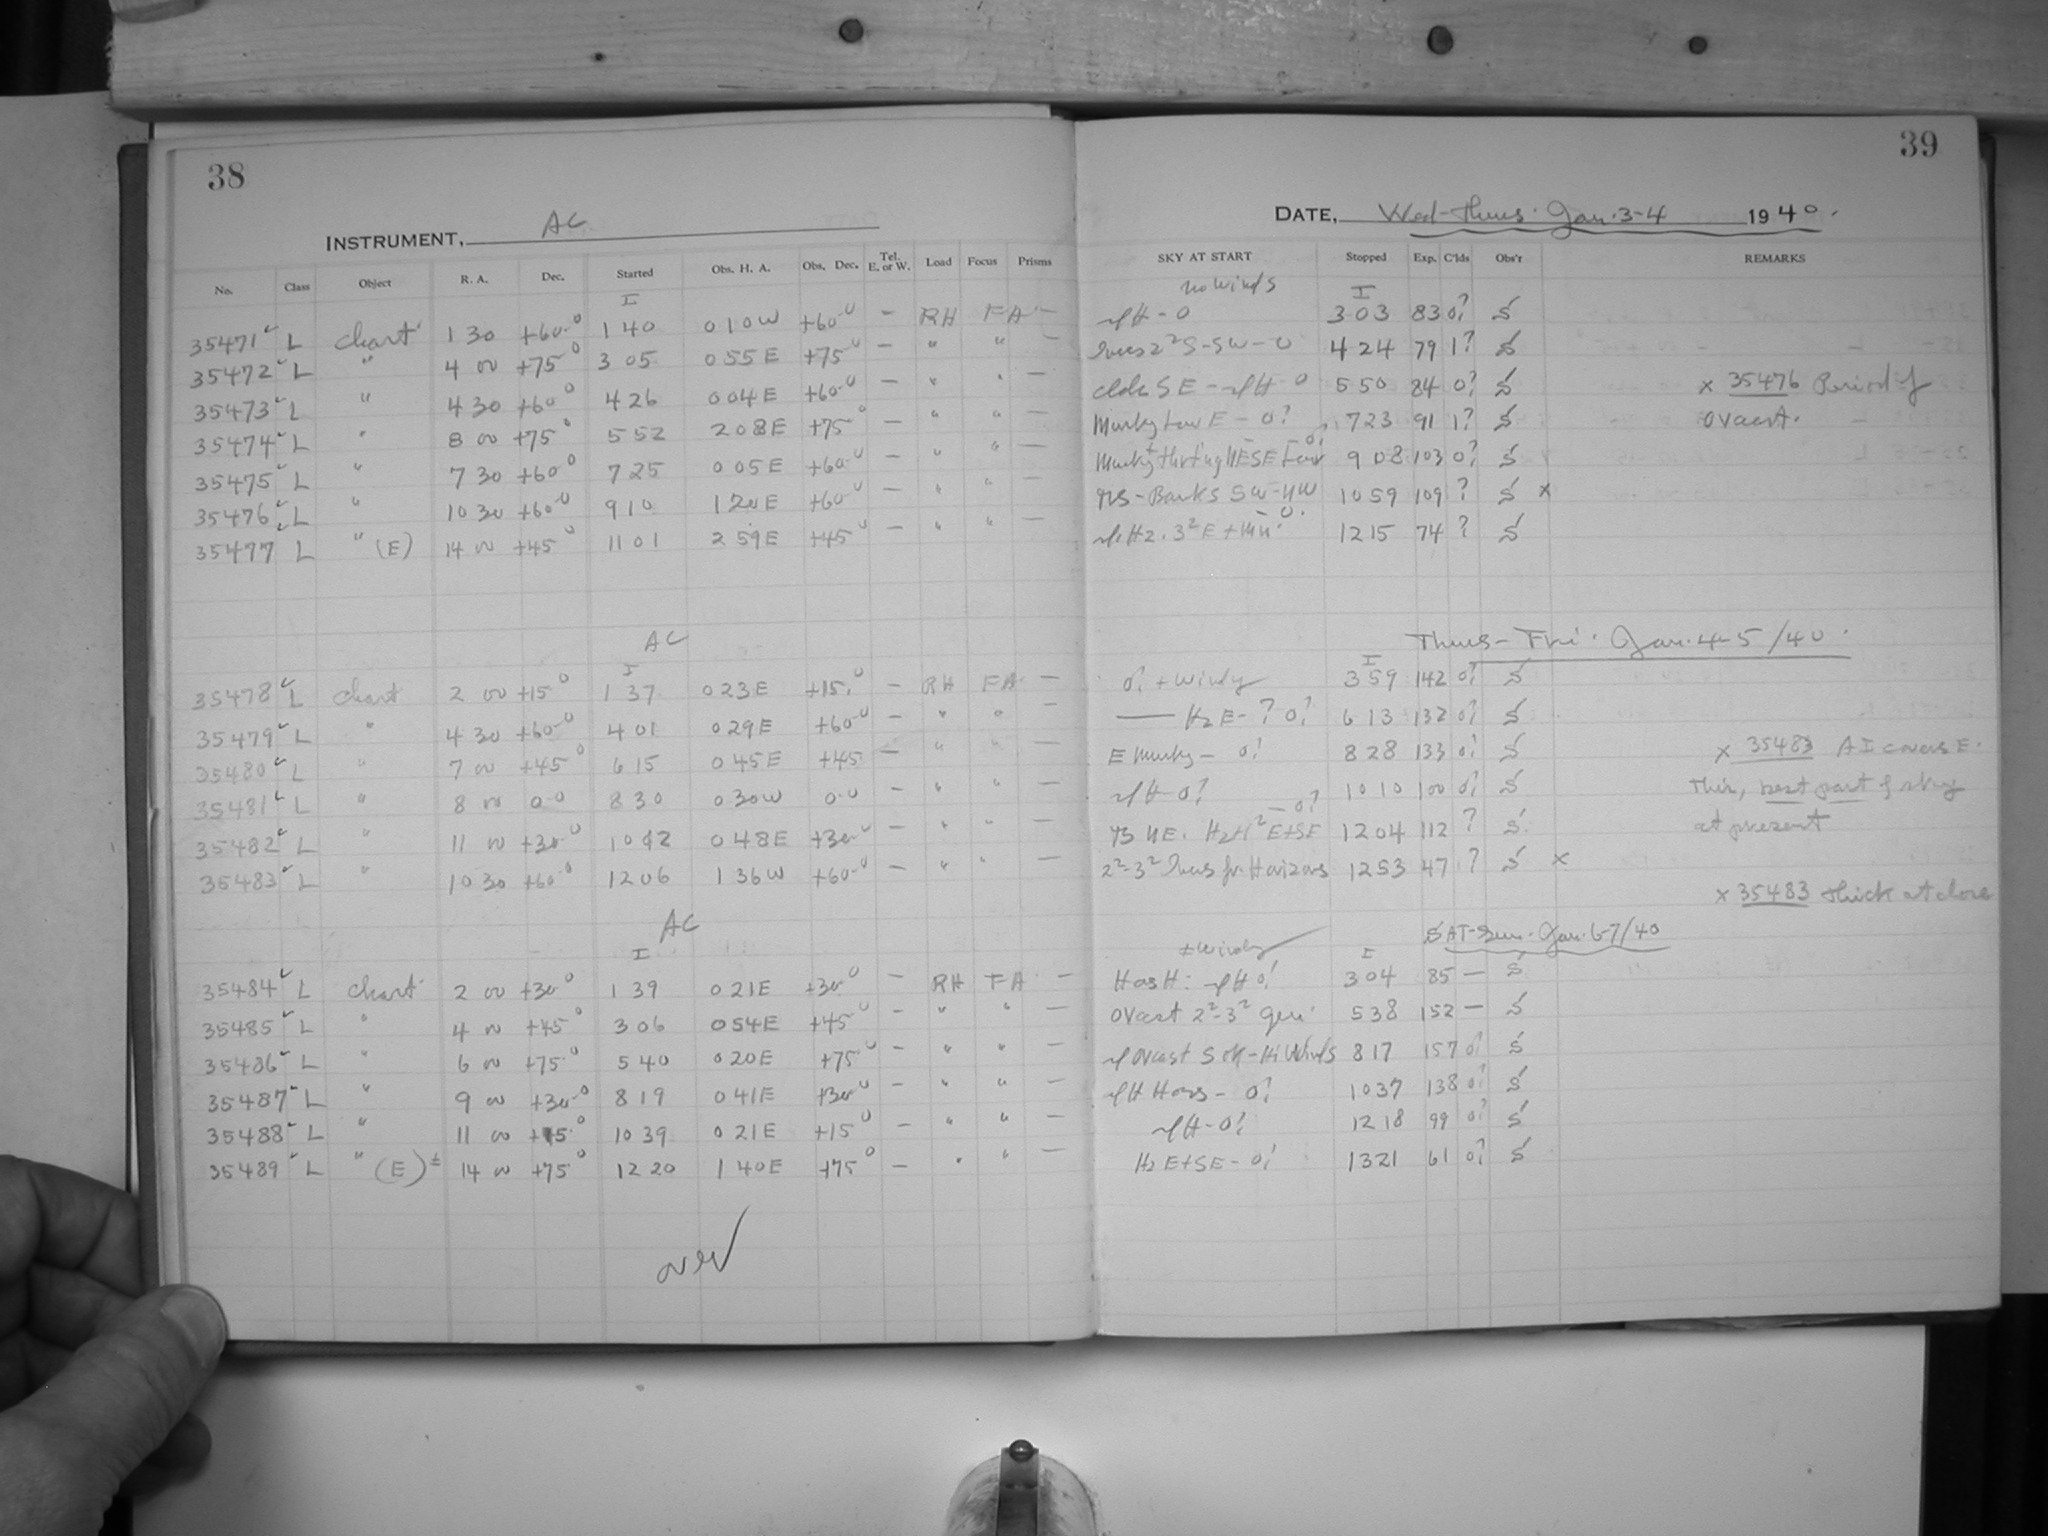 38
INSTRUMENT, AC
No. Class Object R. A. Dec. Started Obs. H. A. Obs. Dec. Tel. E. or W. Load Focus Prisms
I
35471 L Chart 1 30 +60 0 1 40 0 10 W +60 0 — RH FA —
35472 L " 4 00 +75 0 3 05 0 55 E +75 0 — " " —
35473 L " 4 30 +60 0 4 26 0 04 E +60 0 — " " —
35474 L " 8 00 +75 0 5 52 2 08 E +75 0 — " " —
35475 L " 7 30 +60 0 7 25 0 05 E +60 0 — " " —
35476 L " 10 30 +60 0 9 10 1 20 E +60 0 — " " —
35477 L " (E) 14 00 +45 0 11 01 2 59 E +45 0 — " " —
AC
I
35478 L Chart 2 00 +15 0 1 37 0 23 E +15 0 — RH FA —
35479 L " 4 30 +60 0 4 01 0 29 E +60 0 — " " —
35480 L " 7 00 +45 0 6 15 0 45 E +45 — " " —
35481 L " 8 00 0 0 8 30 0 30 W 0 0 — " " —
35482 L " 11 00 +30 0 10 12 0 48 E +30 0 — " " —
35483 L " 10 30 +60 0 12 06 1 36 W +60 0 — " " —
AC
I
35484 L Chart 2 00 +30 0 1 39 0 21 E +30 0 — RH FA —
35485 L " 4 00 +45 0 3 06 0 54 E +45 0 — " " —
35486 L " 6 00 +75 0 5 40 0 20 E +75 0 — " " —
35487 L " 9 00 +30 0 8 19 0 41 E +30 0 — " " —
35488 L " 11 00 +15 0 10 39 0 21 E +15 0 — " " —
35489 L " (E) ± 14 00 +75 0 12 20 1 40 E +75 0 — " " —
over
39
DATE, Wed-Thurs. Jan. 3-4 1940.
SKY AT START Stopped Exp. C'lds Obs'r REMARKS
no winds I
H - 0 3 03 83 0? S
S-SW - 0 4 24 79 1? S
clds SE - H 0 5 50 84 0? S x 35476 Period of
Murky Low E - 0? 7 23 91 1? S Ovcast.
Murky NESE Low 0? 9 08 103 0? S
Banks SW-NW 10 59 109 ? S x
H2. 3² E + 12 15 74 ? S
Thurs-Fri. Jan. 4-5/40.
I
0? + Windy 3 59 142 0? S
— H2 E - ? 0? 6 13 132 0? S
E Murky - 0? 8 28 133 0? S x 35483 AI covers E.
H 0? 10 10 100 0? S This, best part of sky
NE. E+SE - 0? 12 04 112 ? S at present
2²-3² Horizons 12 53 47 ? S x
x 35483 thick at close
SAT-Sun. Jan. 6-7/40
+ Windy I
H 0? 3 04 85 — S
Ovcast 2²-3² 5 38 152 — S
Ovcast Hi Winds 8 17 157 0? S
H - 0? 10 37 138 0? S
H - 0? 12 18 99 0? S
H2 E+SE - 0? 13 21 61 0? S